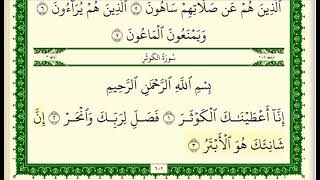 الَّذِينَ هُمْ عَن صَلَاتِهِمْ سَاهُونَ ٥ الَّذِينَ هُمْ يُرَاءُونَ ٦
وَيَمْنَعُونَ الْمَاعُونَ ٧
سُورَةُ الكَوْثَرِ
بِسْمِ اللَّهِ الرَّحْمَٰنِ الرَّحِيمِ
إِنَّا أَعْطَيْنَاكَ الْكَوْثَرَ ١ فَصَلِّ لِرَبِّكَ وَانْحَرْ ٢ إِنَّ
شَانِئَكَ هُوَ الْأَبْتَرُ ٣
٦٠٢